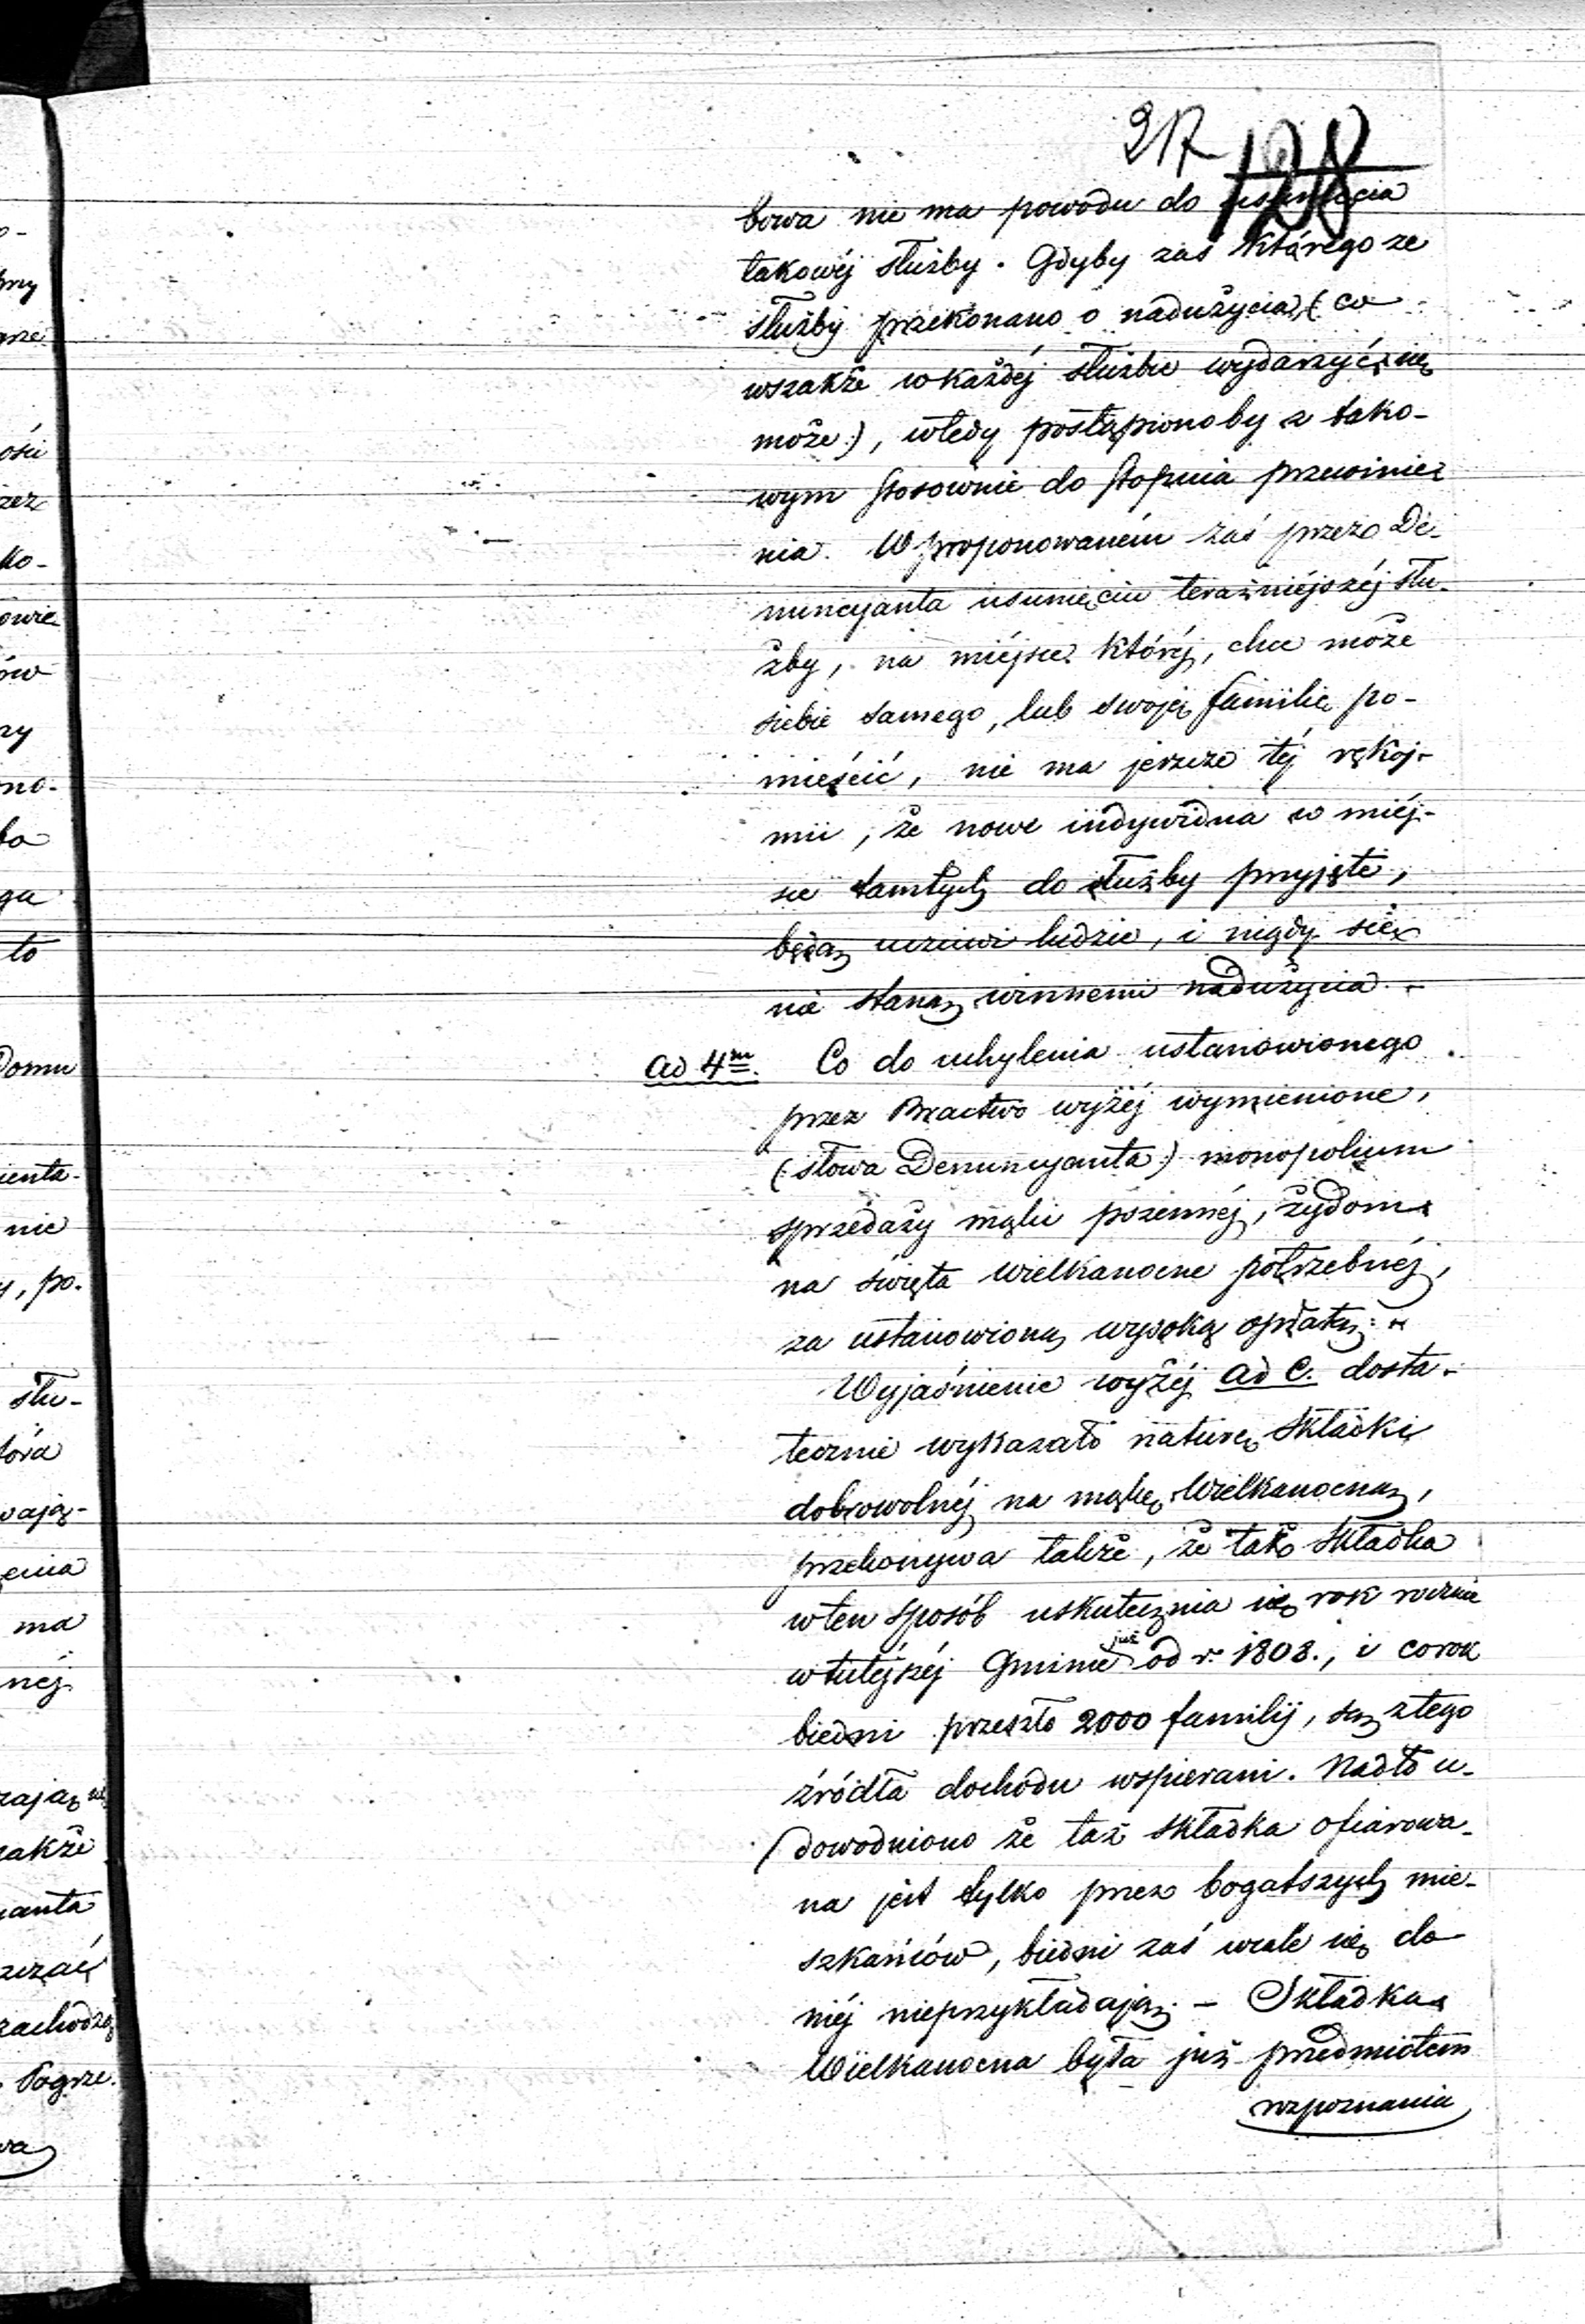 217 128
bowa nie ma powodu do usunięcia
takowéj służby. Gdyby zaś którego ze
służby przekonano o nadużycia, (co
wszakże w każdéj służbie wydarzyć się
może), wtedy postąpionoby z tako-
wym stosownie do stopnia przewinie-
nia. W proponowaném zaś przez De-
nuncyanta usunięciu teraźniéjszéj słu-
żby, na miéjsce któréj, chce może
siebie samego, lub swoję familię po-
mieścić, nie ma jeszcze téj rękoj-
mii, że nowe indywidua w miéj-
sce tamtych do służby przyjęte,
będą uczciwi ludzie, i nigdy się
nie staną winnemi nadużycia. -
Ad 4m. Co do uchylenia ustanowionego
przez Bractwo wyżéj wymienione,
(: słowa Denuncyanta :) monopolium
sprzedaży mąki pszennéj, żydom
na święta wielkanocne potrzebnéj,
za ustanowioną wysoką opłatą: -
Wyjaśnienie wyżéj ad C. dosta-
tecznie wykazało naturę składki
dobrowolnéj na mąkę Wielkanocną,
przekonywa także, że taż składka
w ten sposób uskutecznia się rok rocznie
w tutéjszéj Gminie już od r. 1808., i corok
biedni przeszło 2000 familij, są z tego
źródła dochodu wspierani. Nadto u-
dowodniono że taż składka ofiarowa-
na jest tylko przez bogatszych mie-
szkańców, biedni zaś wcale się do
niéj nieprzykładają. - Składka
Wielkanocna była już przedmiotem
rozpoznania